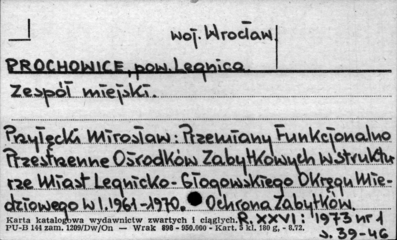 woj. Wrocław
PROCHOWICE, pow. Legnica.
Zespół miejski.
Przyłęcki Mirosław: Przemiany Funkcjonalno
Przestrzenne Ośrodków Zabytkowych w struktu
rze Miast Legnicko-Głogowskiego Okręgu Mie-
dziowego w l. 1961-1970. Ochrona Zabytków.
R. XXVI: 1973 nr 1
s. 39-46
Karta katalogowa wydawnictw zwartych i ciągłych.
PU-B 144 zam. 1209/Dw/On — Wrak 898 - 050.000 - Kart. 5 kl. 180 g, - 8.72.